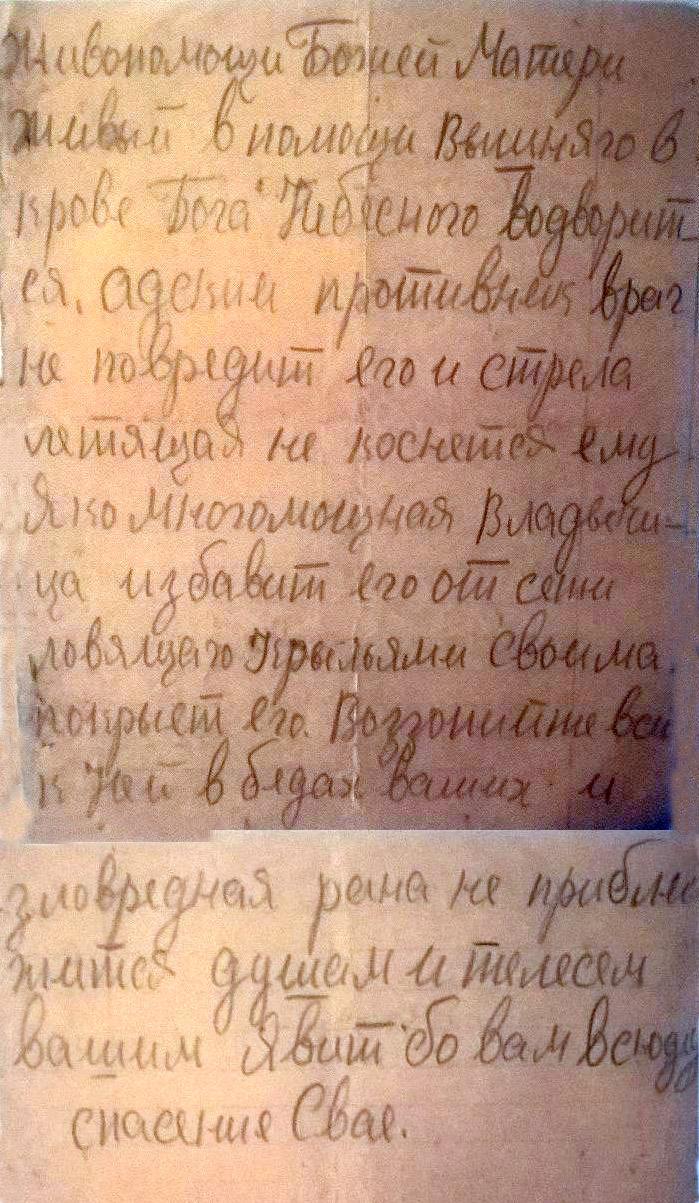 Живопомощи Божией Матери
живый в помощи Вышняго в
крове Бога Небесного водворит-
ся, адский противник враг
не повредит его и стрела
летящая не коснется ему
Яко многомощная Владычи-
ца избавит его от сети
ловящаго Крыльями своима
покрыет его. Возгонийте вси
к Ней в бедах ваших и
зловредная рана не прибли
жится душам и телесем
вашим Явит бо вам всюду
спасение Свае.